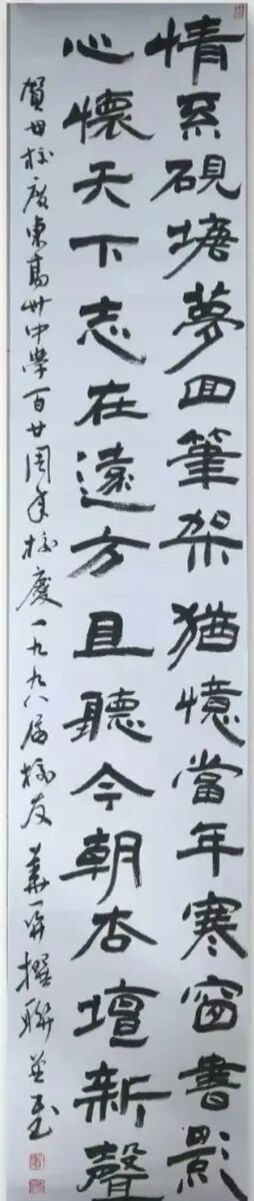 情系硯塘夢回筆架猶憶當年寒窗書影
心懷天下志在遠方且聽今朝杏壇新聲
賀母校廣東高州中學百廿周年校慶一九九八届校友 撰聯并書